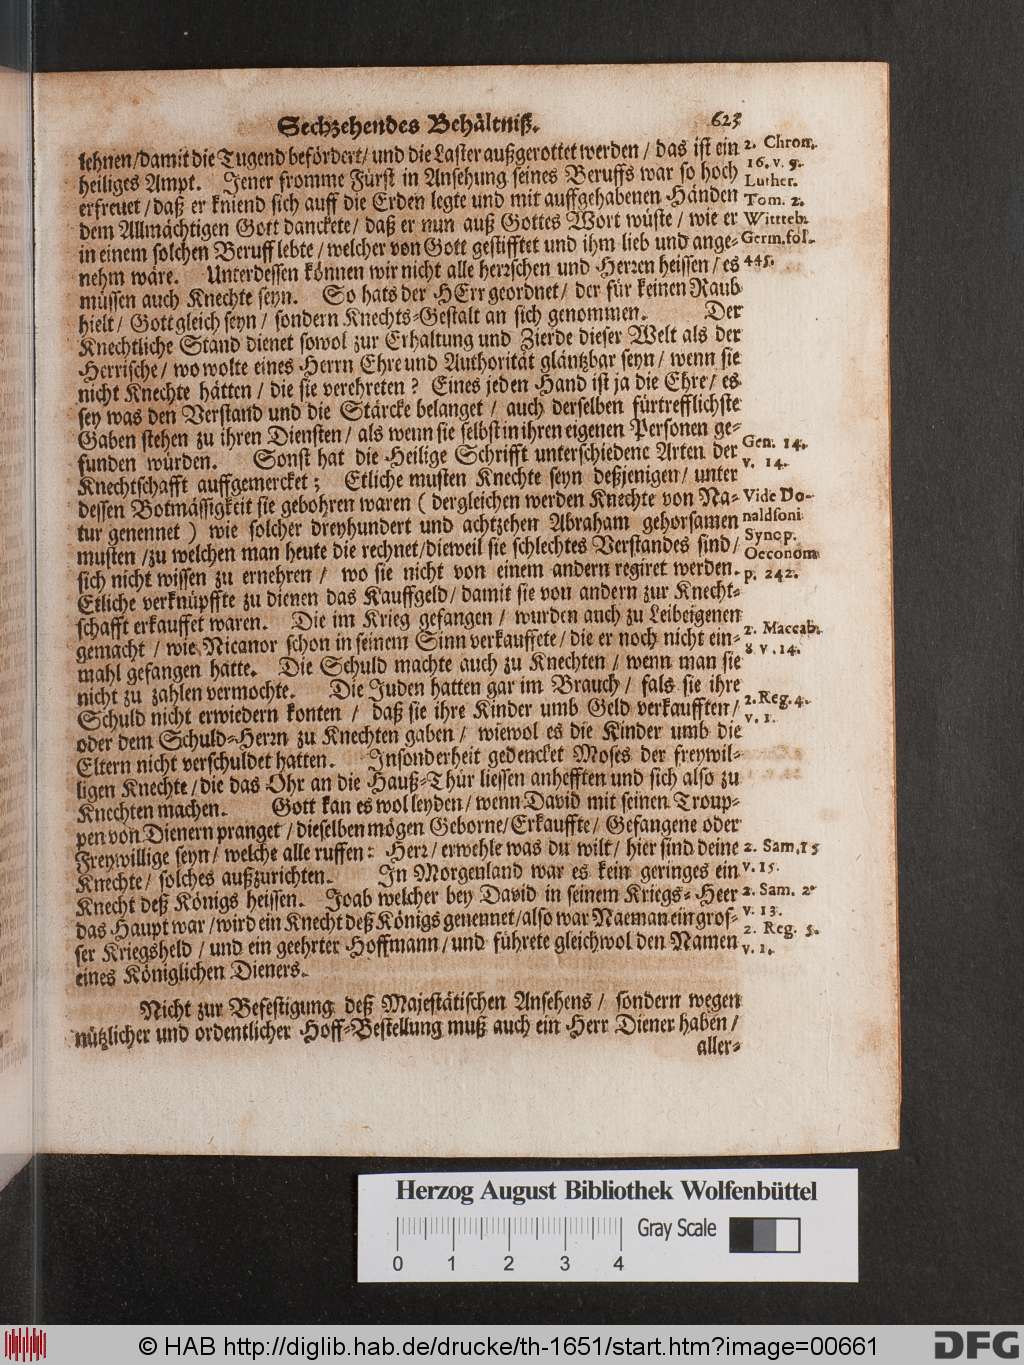 Sechzehendes Behältniß. 623
lehnen/damit die Tugend befördert/ und die Laster außgerottet werden / das ist ein
heiliges Ampt. Jener fromme Fürst in Ansehung seines Beruffs war so hoch
erfreuet / daß er kniend sich auff die Erden legte und mit auffgehabenen Händen
dem Allmächtigen Gott danckete/ daß er nun auß Gottes Wort wüste / wie er
in einem solchen Beruff lebte / welcher von Gott gestifftet und ihm lieb und ange-
nehm wäre. Unterdessen können wir nicht alle herrschen und Herren heissen / es
müssen auch Knechte seyn. So hats der HErr geordnet/ der für keinen Raub
hielt/ Gott gleich seyn / sondern Knechts-Gestalt an sich genommen. Der
Knechtliche Stand dienet sowol zur Erhaltung und Zierde dieser Welt als der
Herrische / wo wolte eines Herrn Ehre und Authorität gläntzbar seyn / wenn sie
nicht Knechte hätten / die sie verehreten ? Eines jeden Hand ist ja die Ehre/ es
sey was den Verstand und die Stärcke belanget / auch derselben fürtrefflichste
Gaben stehen zu ihren Diensten/ als wenn sie selbst in ihren eigenen Personen ge-
funden würden. Sonst hat die Heilige Schrifft unterschiedene Arten der
Knechtschafft auffgemercket; Etliche musten Knechte seyn deßjenigen/ unter
dessen Botmässigkeit sie gebohren waren ( dergleichen werden Knechte von Na-
tur genennet ) wie solcher dreyhundert und achtzehen Abraham gehorsamen
musten /zu welchen man heute die rechnet/dieweil sie schlechtes Verstandes sind/
sich nicht wissen zu ernehren / wo sie nicht von einem andern regiret werden.
Etliche verknüpffte zu dienen das Kauffgeld/ damit sie von andern zur Knecht-
schafft erkauffet waren. Die im Krieg gefangen / wurden auch zu Leibeigenen
gemacht / wie Nicanor schon in seinem Sinn verkauffete/ die er noch nicht ein-
mahl gefangen hatte. Die Schuld machte auch zu Knechten / wenn man sie
nicht zu zahlen vermochte. Die Juden hatten gar im Brauch / fals sie ihre
Schuld nicht erwiedern konten / daß sie ihre Kinder umb Geld verkaufften/
oder dem Schuld-Herrn zu Knechten gaben / wiewol es die Kinder umb die
Eltern nicht verschuldet hatten. Insonderheit gedencket Moses der freywil-
ligen Knechte / die das Ohr an die Hauß-Thür liessen anhefften und sich also zu
Knechten machen. Gott kan es wol leyden/ wenn David mit seinen Troup-
pen von Dienern pranget / dieselben mögen Geborne/ Erkauffte/ Gefangene oder
Freywillige seyn/ welche alle ruffen: Herr/ erwehle was du wilt/ hier sind deine
Knechte/ solches außzurichten. In Morgenland war es kein geringes ein
Knecht deß Königs heissen. Joab welcher bey David in seinem Kriegs-Heer
das Haupt war/ wird ein Knecht deß Königs genennet/also war Naeman ein gros-
ser Kriegsheld / und ein geehrter Hoffmann / und führete gleichwol den Namen
eines Königlichen Dieners.
Nicht zur Befestigung deß Majestätischen Ansehens / sondern wegen
nützlicher und ordentlicher Hoff-Bestellung muß auch ein Herr Diener haben /
aller-
2. Chrom.
16. v. 9.
Luther.
Tom. 2.
Wittteb.
Germ. fol.
445.
Gen. 14.
v. 14.
Vide Do-
naldsoni
Synop.
Oeconom
p. 242.
2. Maccab.
8 v. 14.
2. Reg. 4.
v. 1.
2. Sam. 15
v. 15.
2. Sam. 2
v. 13.
2. Reg. 5.
v. 1.
Herzog August Bibliothek Wolfenbüttel
Gray Scale
0 1 2 3 4
© HAB http://diglib.hab.de/drucke/th-1651/start.htm?image=00661
DFG